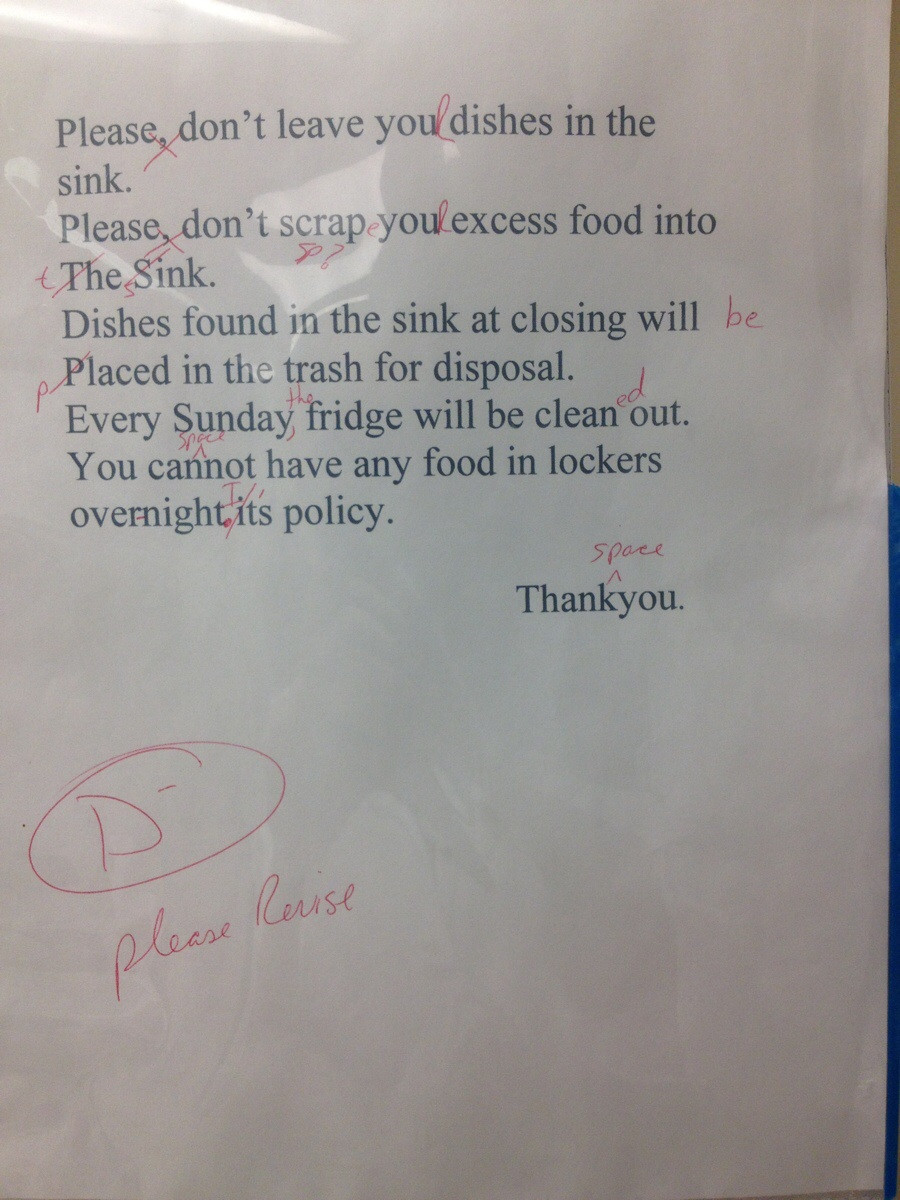 Please, don't leave you r dishes in the
sink.
Please, don't scrap e you r excess food into
sp?
t The s Sink.
Dishes found in the sink at closing will be
p Placed in the trash for disposal.
the ed
Every Sunday, fridge will be clean out.
space
You cannot have any food in lockers
I '
overnight, its policy.
space
Thankyou.
D-
please Revise